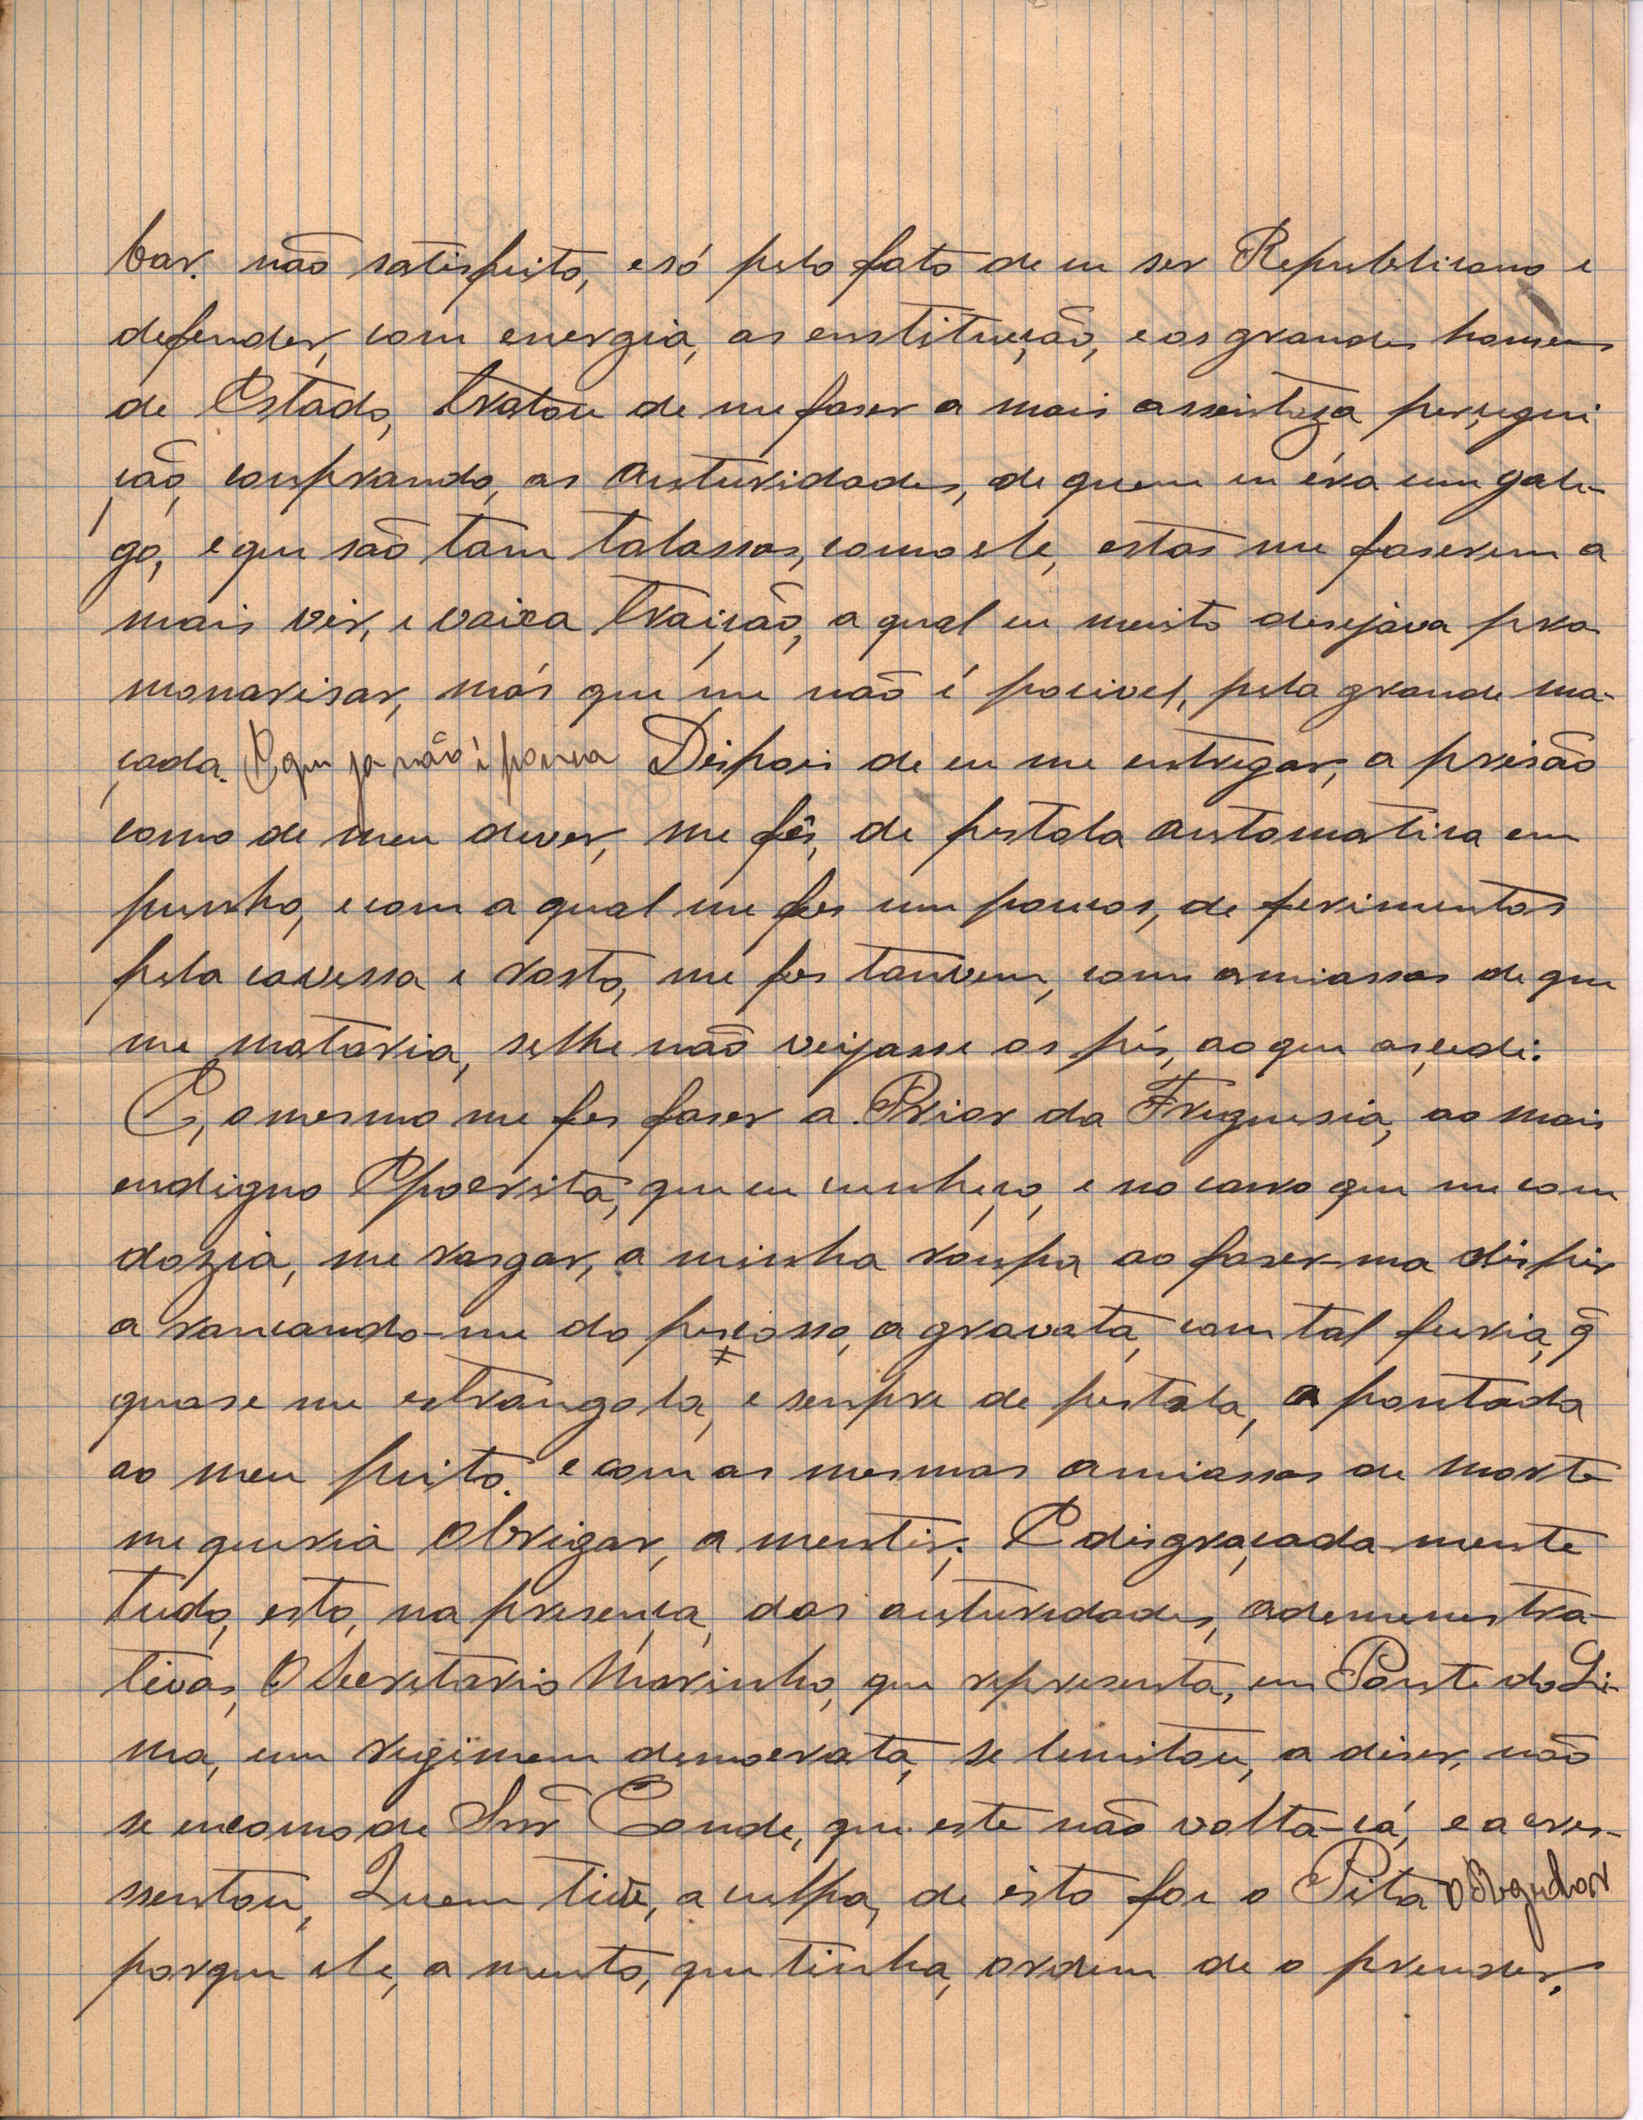 bar. não satisfeito, e só pelo fato de eu ser Republicano e
defender, com energia, as enstitução, e os grandes homens
de Estado, tratou de me faser a mais asseirteza persegui
ção, conprando, as auturidades, de quem eu éra um gale-
go, e que são tam talassas, como ele, estas me faserem a
mais vir, e vaixa traição, a qual eu muito desejava pra
monarisar, más que me não é pocivel, pela grande ma-
çada. E que ja não é pouca Dispois de eu me entregar, a prisão
como de meu dever, me fês, de pistola automatica em
punho, e com a qual me fes um poucos, de ferimentos
pela cavessa e rosto, me fes tanvem, com amiassas de que
me mataria, se lhe não veijasse os pés, ao que açedi.
E, o mesmo me fes faser a Prior da Freguesia, ao mais
endigno Epocrita, que eu cunheço, e no carro que me com
dozia, me rasgar, a minha roupa ao faser-ma dispir
a rancando-me do pescosso, a gravata, com tal furia, q̃
quase me estrangola, e senpre de pistola, a pontada
ao meu peito. e com as mesmas amiassas de morte
me queria obrigar, a mentir. E disgraçada mente
tudo, esto, na presença, das auturidades, ademenestra-
tivas, O Secretario Marinho, que representa, em Ponte do Li-
ma, um regimem democrata, se limitou, a diser, não
se encomode Snr Conde, que este não volta cá, e a cres-
ssentou, Quem tive, a culpa, de ésto foi o Pita o Regedor
porque ele, a mento, que tinha, ordem de o prender,